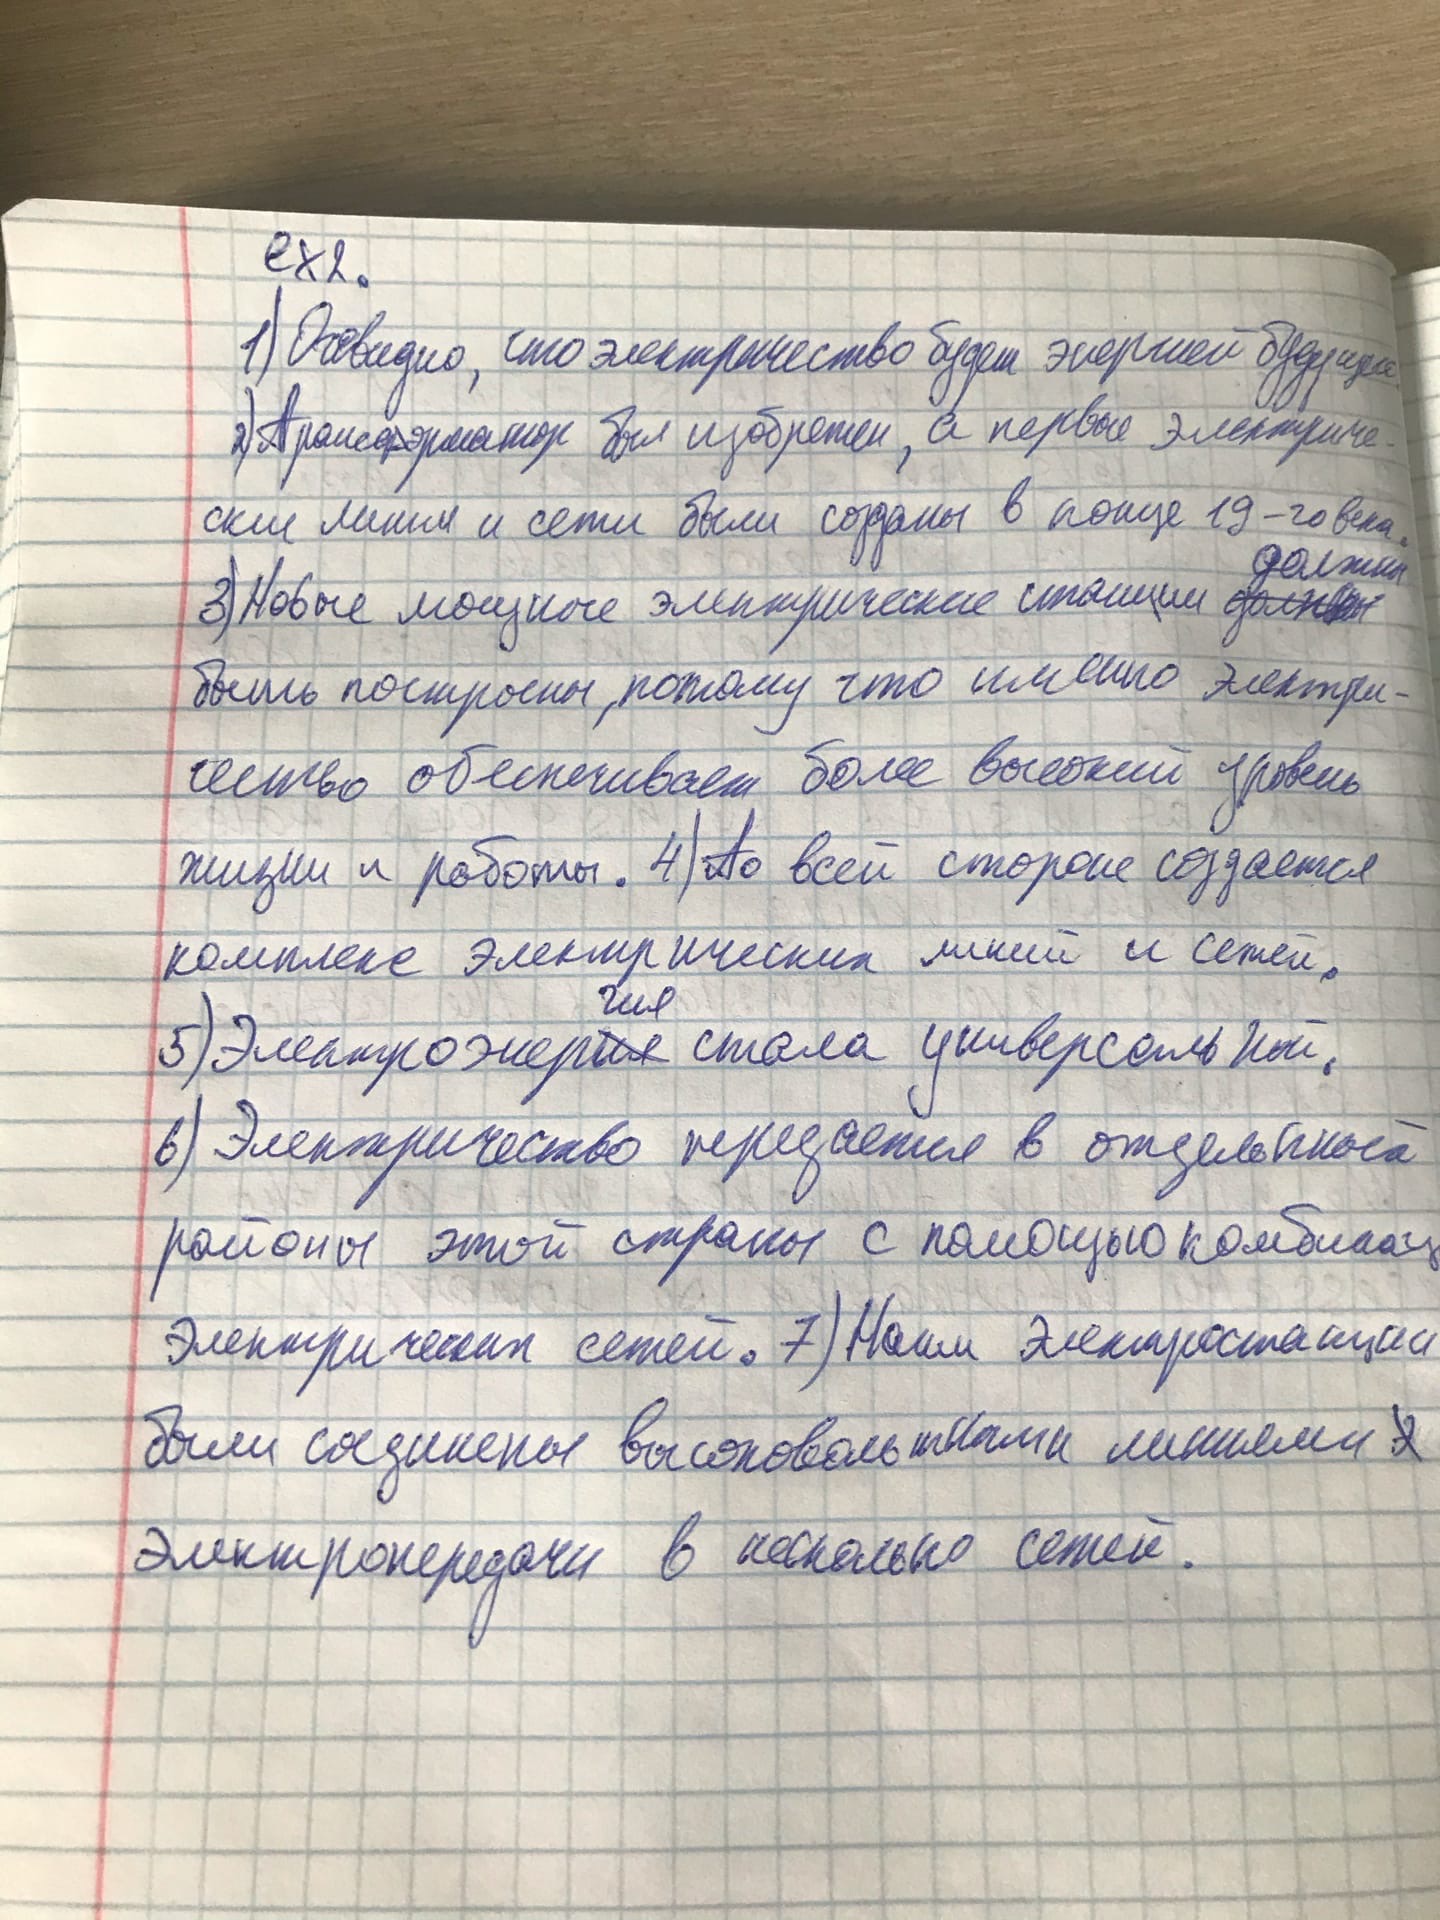 ex2.
1) Очевидно, что электричество будет энергией будущего.
2) Трансформатор был изобретен, а первые электриче-
ские линии и сети были созданы в конце 19-го века.
должны
3) Новые мощные электрические станции должны
быть построены, потому что именно электри-
чество обеспечивает более высокий уровень
жизни и работы. 4) По всей стороне создается
комплекс электрических линий и сетей.
гия
5) Электроэнергия стала универсальной.
6) Электричество передается в отдельный
районы этой страны с помощью комбинац
электрических сетей. 7) Наши электростанции
были соединены высоковольтными линиями
электропередачи в несколько сетей.